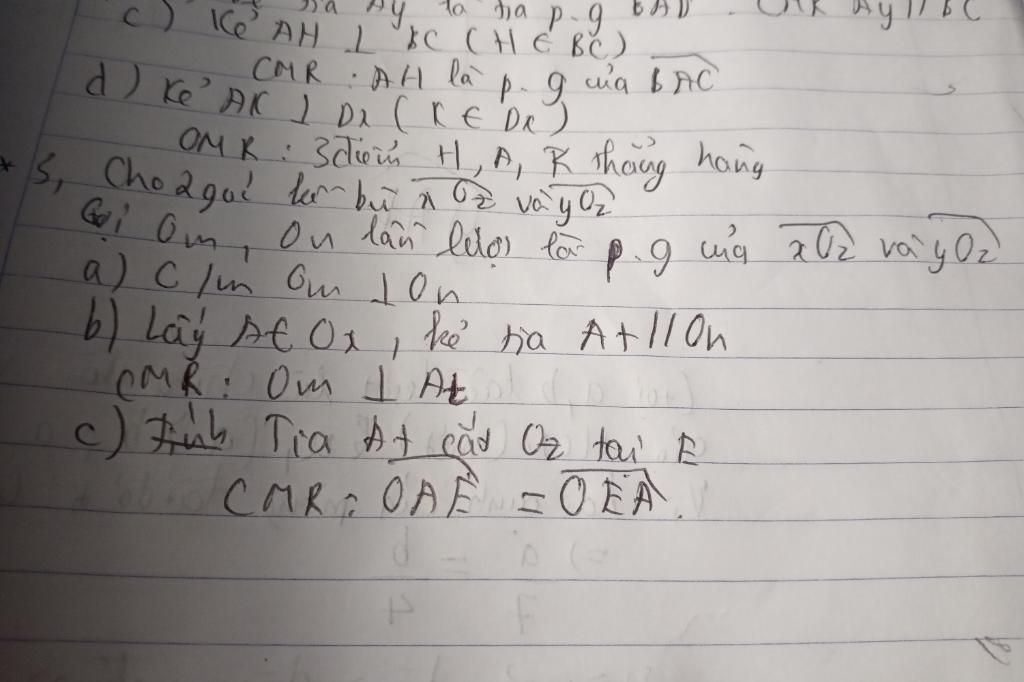 tia Ay là tia p.g BAD. CMR Ay // BC
c) Kẻ AH ⊥ BC (H ∈ BC)
CMR : AH là p.g của BAC
d) Kẻ AK ⊥ Dx (K ∈ Dx)
CMR : 3 điểm H, A, K thẳng hàng
* 5, Cho 2 góc kề bù xOz và yOz
Gọi Om, On lần lượt là p.g của xOz và yOz
a) C/m Om ⊥ On
b) Lấy A ∈ Ox, kẻ tia At // On
CMR : Om ⊥ At
c) Tia At cắt Oz tại E
CMR : OAE = OEA.